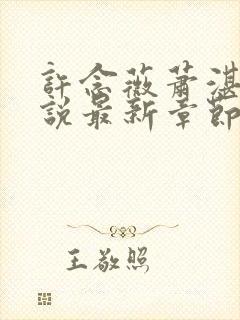 許念薇蕭湛
說最新章節
王敬照